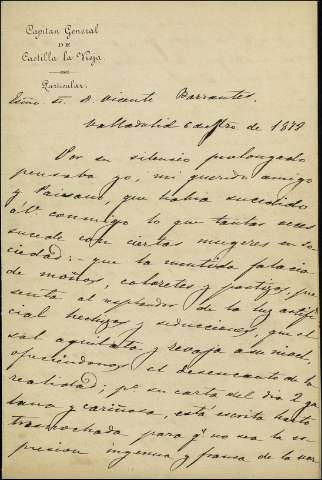 Capitan General
DE
Castilla la Vieja.
Particular.
Exmo. Sr. D. Vicente Barrantes.
Valladolid 6 de de 1879
Por su silencio prolongado
pensaba yo, mi querido amigo
y Paisano, que habia sucedido
á V. conmigo lo que tantas veces
sucede con ciertas mugeres en so
ciedad; que la mentida falacia
de moños, coloretes y postizos, pre
senta al resplandor de la luz artifi
cial hechizos y seducciones, que el
sol aquilata y revaja á su modo,
ofreciéndonos el desencanto de la
realidad; pº su carta del dia 2 ga
lana y cariñosa, está escrita harto
trasnochada para q. no sea la es
presion ingenua y franca de la ver